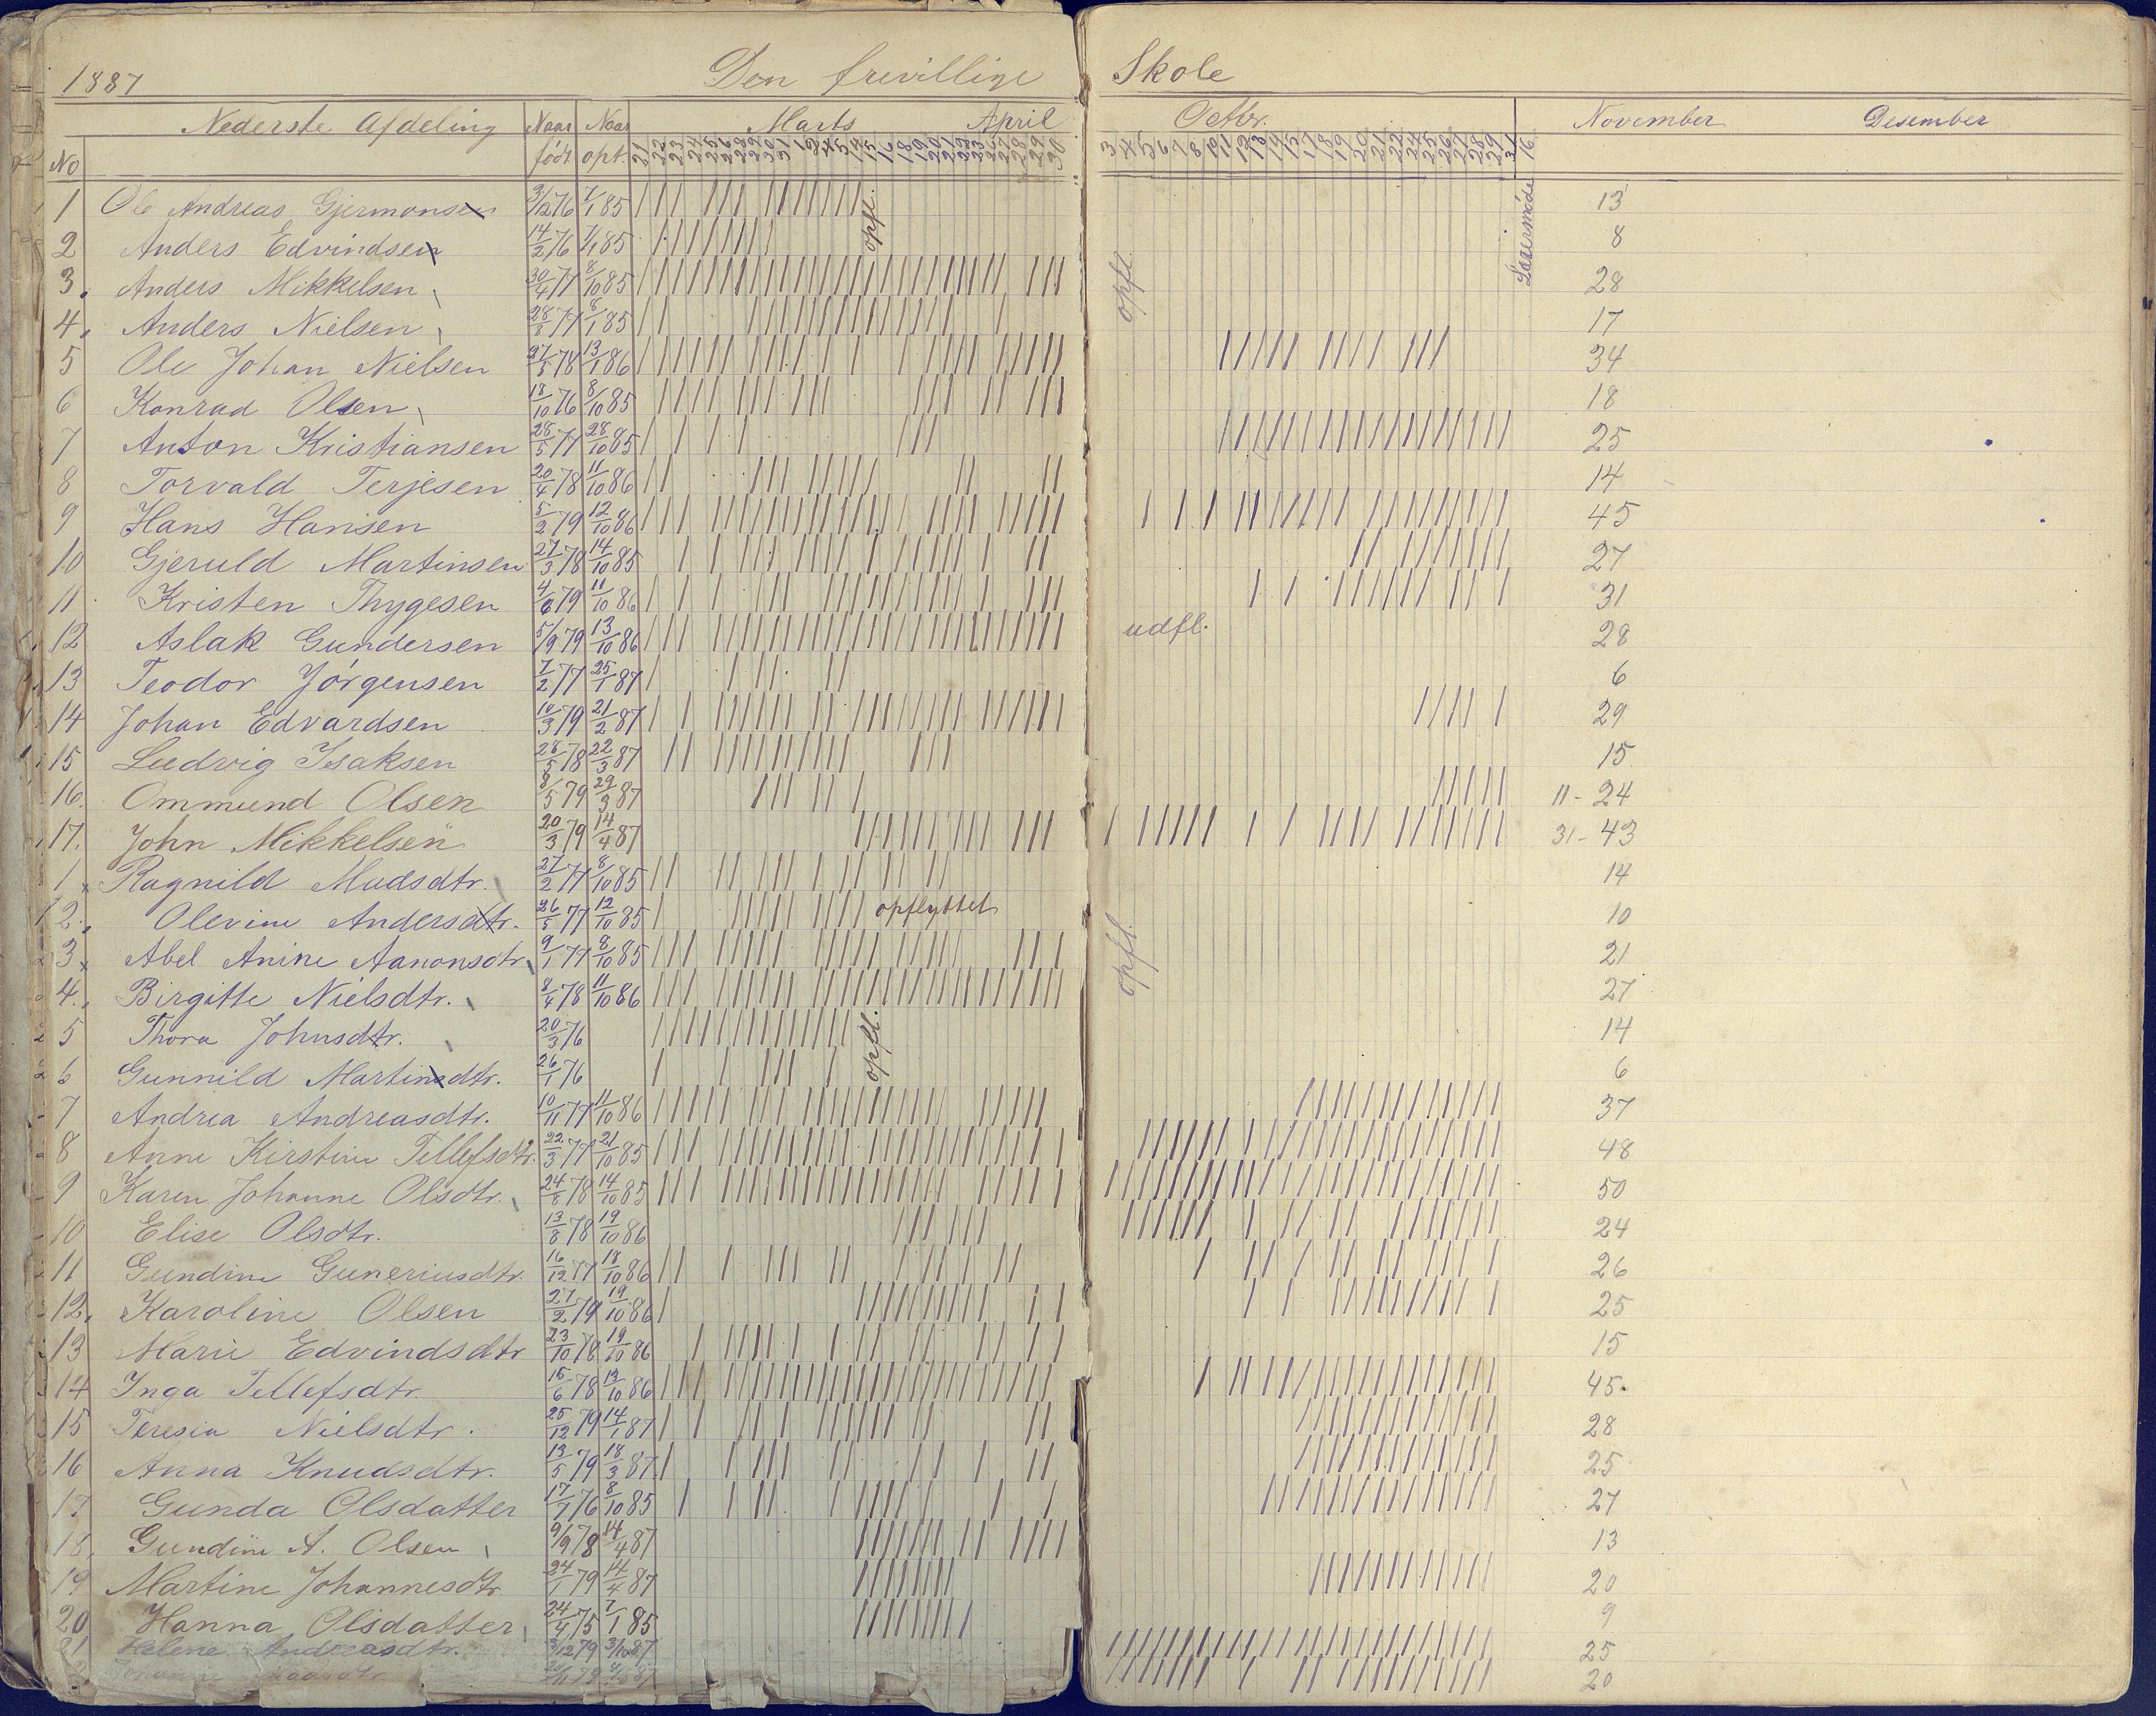 1887 Den frivillige Skole
Nederste Afdeling Naar født Naar opt. Marts April Octbr. November Desember
No
1 Ole Andreas Gjermonsen 3/12 76 7/1 85 opfl. 13
2 Anders Edvindsen 14/2 76 7/1 85 8
3. Anders Mikkelsen 30/4 77 8/10 85 opfl. 28
4. Anders Nielsen 28/8 77 8/1 85 17
5 Ole Johan Nielsen 27/5 78 13/1 86 34
6 Konrad Olsen 18/10 76 8/10 85 18
7 Anton Kristiansen 28/5 77 28/10 85 25
8 Torvald Terjesen 20/4 78 11/10 86 14
9 Hans Hansen 5/2 79 12/10 86 45
10 Gjeruld Martinsen 27/3 78 14/10 85 27
11 Kristen Thygesen 4/6 79 11/10 86 31
12 Aslak Gundersen 5/9 79 13/10 86 udfl. 28
13 Teodor Jörgensen 7/2 77 25/1 87 6
14 Johan Edvardsen 10/3 79 21/2 87 29
15 Ludvig Isaksen 28/5 78 22/3 87 15
16. Ommund Olsen 8/5 79 29/3 87 11 - 24
17. John Mikkelsen 20/3 79 14/4 87 31 - 43
1 Ragnild Madsdtr. 27/2 77 8/10 85 14
2. Olevine Andersdtr. 26/5 77 12/10 85 opflyttet 10
3 Abel Anine Aanonsdtr. 9/1 77 8/10 85 opfl. 21
4. Birgitte Nielsdtr. 8/4 78 11/10 86 27
5 Thora Johnsdtr. 20/3 76 opfl. 14
6 Gunnild Martinsdtr. 26/1 76 6
7 Andrea Andreasdtr. 10/11 77 11/10 86 37
8 Anne Kirstine Tellefsdtr. 22/3 77 21/10 85 48
9 Karen Johanne Olsdtr. 24/8 78 14/10 85 50
10 Elise Olsdtr. 13/8 78 19/10 86 24
11 Gundine Guneriusdtr. 16/12 77 18/10 86 26
12. Karoline Olsen 27/2 79 19/10 86 25
13 Marie Edvindsdtr 23/10 78 19/10 86 15
14 Inga Tellefsdtr. 15/6 78 13/10 86 45.
15 Teresia Nielsdtr. 25/12 79 14/1 87 28
16 Anna Knudsdtr. 13/5 79 18/3 87 25
17 Gunda Olsdatter 17/7 76 8/10 85 27
18. Gundine A. Olsen 9/9 78 14/4 87 13
19 Martine Johannesdtr. 24/1 79 14/4 87 20
20 Hanna Olsdatter 24/4 75 7/1 85 9
21 Helene Andreasdtr. 3/12 79 3/10 87 25
20